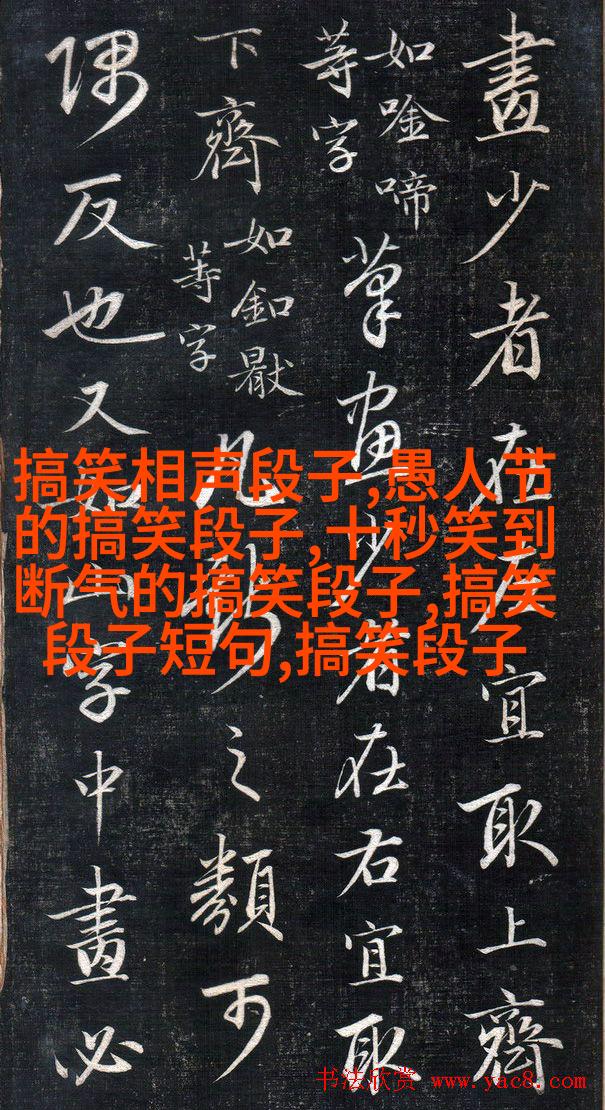 畫少者在左宜取上齊
如唫啼
等字
筆畫少者在右宜取
下齊
如釦
等字
凡之類可
隅反也又如山字中畫必
搞笑相声段子,愚人节
的搞笑段子,十秒笑到
断气的搞笑段子,搞笑
段子短句,搞笑段子
书法欣赏 www.yac8.com